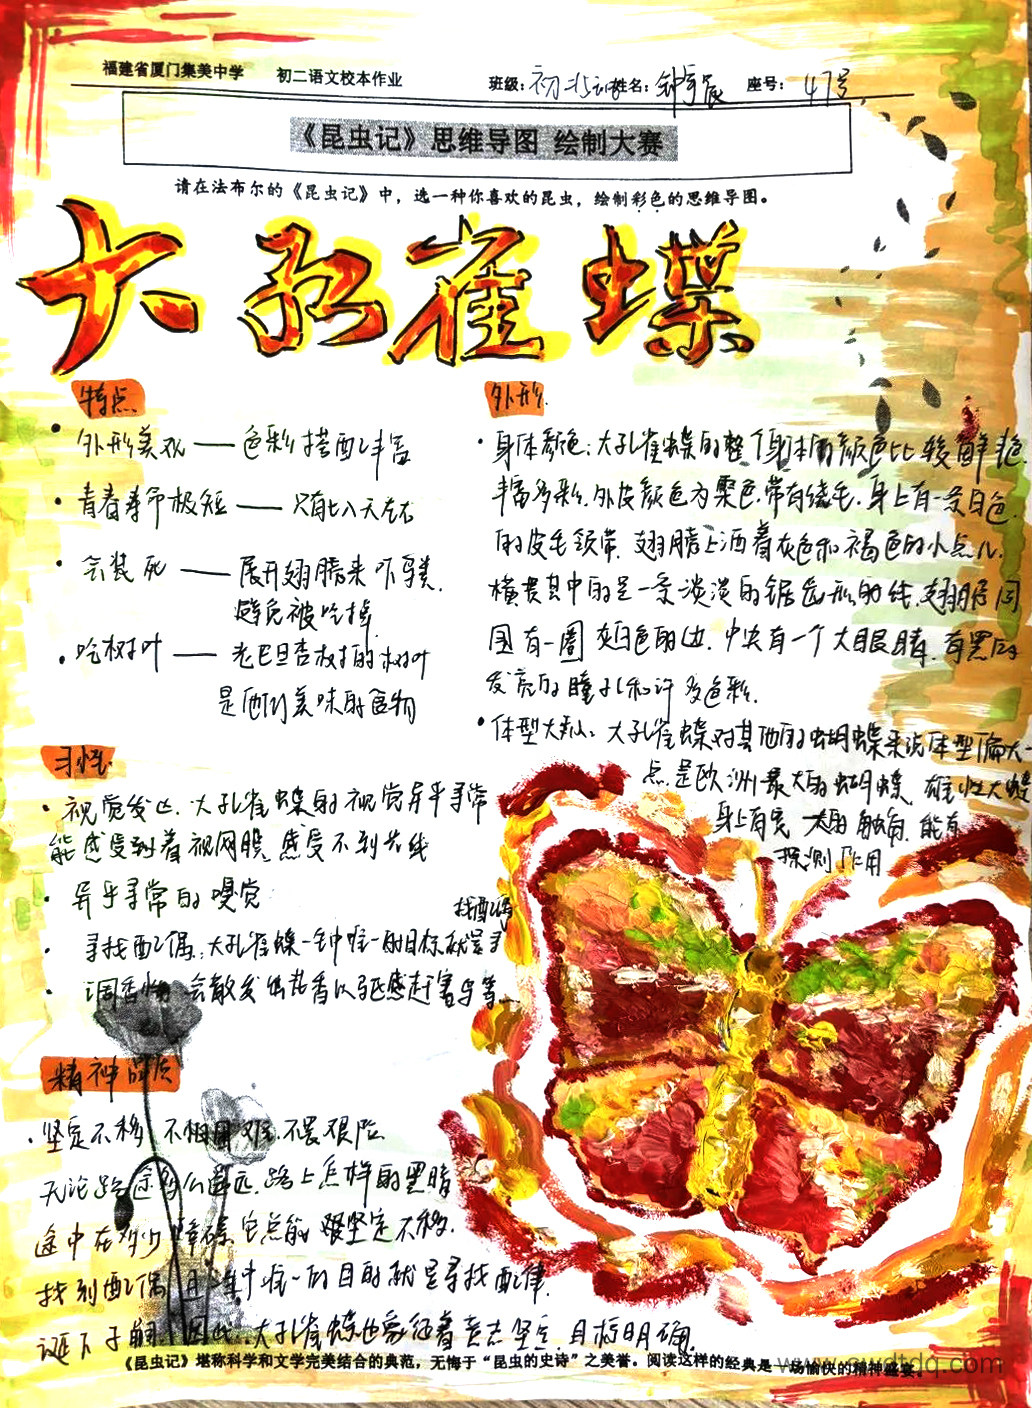 福建省厦门集美中学 初二语文校本作业 班级：初 姓名： 座号：47号
《昆虫记》思维导图 绘制大赛
请在法布尔的《昆虫记》中，选一种你喜欢的昆虫，绘制彩色的思维导图。
大孔雀蝶
特点
·外形美观——色彩搭配丰富
·青春寿命极短——只有七八天左右
·会装死——展开翅膀来吓
避免被吃掉
·吃树叶——老巴旦杏树的树叶
是他们美味的食物
外形
·身体颜色：大孔雀蝶的整个身体的颜色比较鲜艳
丰富多彩.外皮颜色为栗色.带有绒毛.身上有一条白色
的皮毛领带.翅膀上洒着灰色和褐色的小点儿
横贯其中的是一条淡淡的锯齿形的线.翅膀周
围有一圈灰白色的边.中央有一个大眼睛.有黑得
发亮的瞳孔和许多色彩.
·体型大小：大孔雀蝶对其他的蝴蝶来说体型偏大一
点.是欧洲最大的蝴蝶.雄性大蝶
身上有宽大的触角.能有
探测作用
习性
·视觉发达.大孔雀蝶的视觉异乎寻常
能感受到着视网膜.感受不到光线
·异乎寻常的嗅觉
·寻找配偶：大孔雀蝶一钟唯一的目标就是寻
找配偶
·调香 会散发出 香以驱 赶害虫等
精神品质
·坚定不移 不怕困难.不畏艰险
无论路途多么遥远.路上怎样的黑暗
途中有多少障碍.它总能 坚定不移.
找到配偶 唯一的目的就是寻找配偶
诞下子嗣.因此.大孔雀蝶也象征着意志坚定.目标明确
《昆虫记》堪称科学和文学完美结合的典范，无悔于“昆虫的史诗”之美誉。阅读这样的经典是一场愉快的精神盛宴。